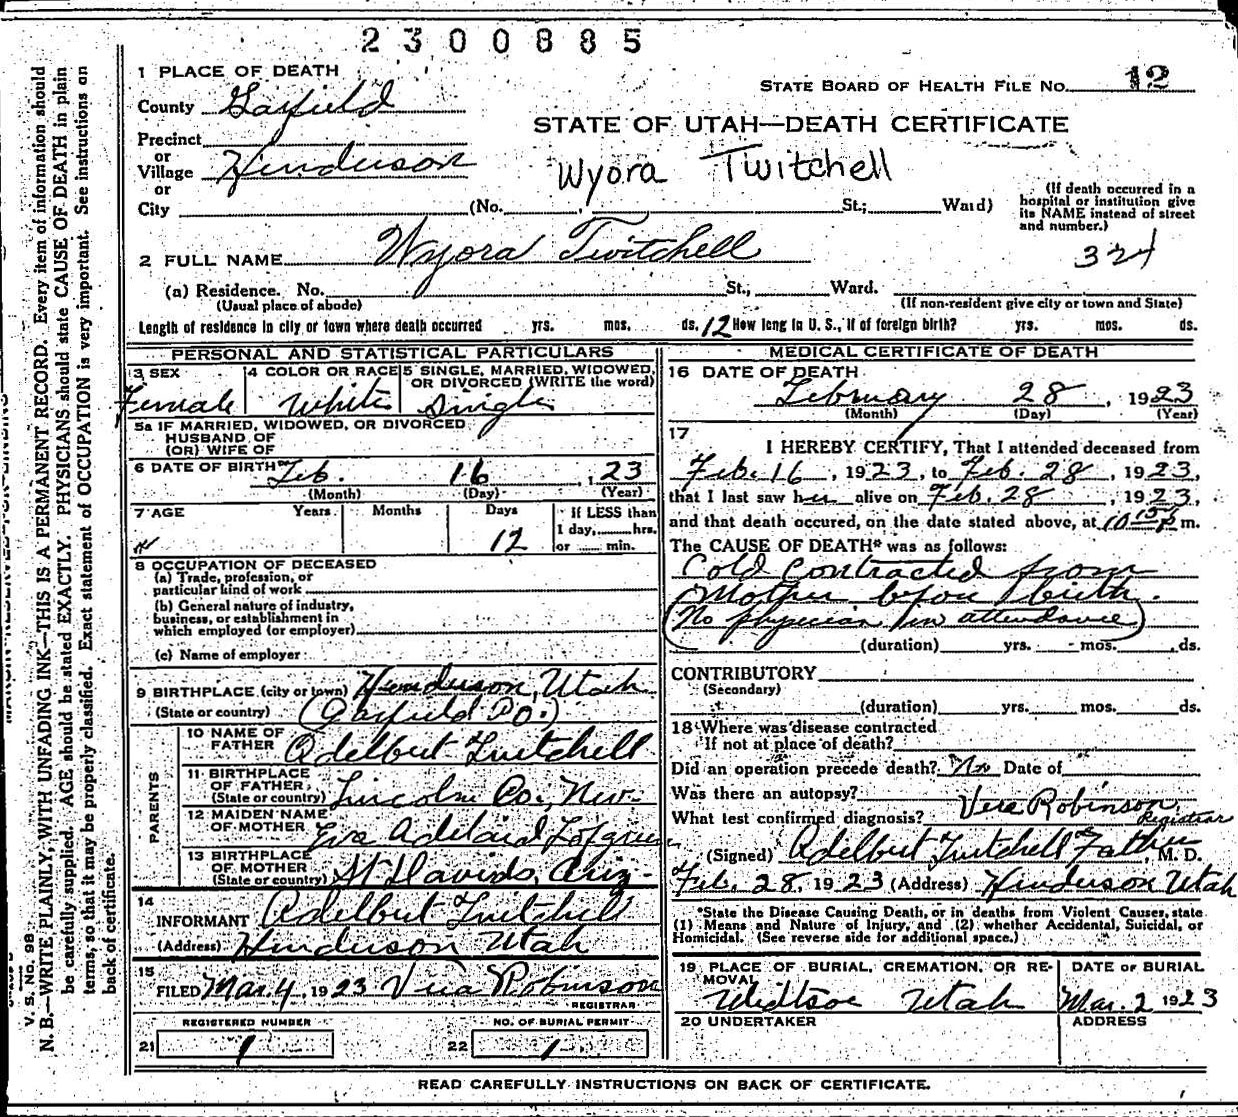 2300885
1 PLACE OF DEATH
STATE BOARD OF HEALTH FILE NO. 12
County Garfield
STATE OF UTAH—DEATH CERTIFICATE
Precinct
or
Village Henderson
or
Wyora Twitchell
City (No. , St.; Ward)
(If death occurred in a hospital or institution give its NAME instead of street and number.)
2 FULL NAME Wyora Twitchell
324
(a) Residence. No. St., Ward.
(Usual place of abode) (If non-resident give city or town and State)
Length of residence in city or town where death occurred yrs. mos. ds. 12 How long in U. S., if of foreign birth? yrs. mos. ds.
PERSONAL AND STATISTICAL PARTICULARS
3 SEX Female
4 COLOR OR RACE White
5 SINGLE, MARRIED, WIDOWED, OR DIVORCED (WRITE the word) Single
5a IF MARRIED, WIDOWED, OR DIVORCED
HUSBAND OF
(OR) WIFE OF
6 DATE OF BIRTH Feb. 16, 23
(Month) (Day) (Year)
7 AGE Years Months Days 12
If LESS than
1 day, hrs.
or min.
8 OCCUPATION OF DECEASED
(a) Trade, profession, or
particular kind of work
(b) General nature of industry,
business, or establishment in
which employed (or employer)
(c) Name of employer
9 BIRTHPLACE (city or town) Henderson, Utah
(State or country) (Garfield Co.)
PARENTS
10 NAME OF FATHER Adelbert Twitchell
11 BIRTHPLACE OF FATHER (State or country) Lincoln Co., Nev.
12 MAIDEN NAME OF MOTHER Iva Adelaid Lofgreen
13 BIRTHPLACE OF MOTHER (State or country) St Davids, Ariz.
14
INFORMANT Adelbert Twitchell
(Address) Henderson Utah
15
FILED Mar. 4, 1923 Vera Robinson
REGISTRAR
REGISTERED NUMBER
21 1
NO. OF BURIAL PERMIT
22 1
MEDICAL CERTIFICATE OF DEATH
16 DATE OF DEATH
February 28, 1923
(Month) (Day) (Year)
17
I HEREBY CERTIFY, That I attended deceased from
Feb. 16, 1923, to Feb. 28, 1923,
that I last saw her alive on Feb. 28, 1923,
and that death occured, on the date stated above, at 10 15 P m.
The CAUSE OF DEATH* was as follows:
Cold contracted from
Mother birth.
No physician in attendance
(duration) yrs. mos. ds.
CONTRIBUTORY
(Secondary)
(duration) yrs. mos. ds.
18 Where was disease contracted
If not at place of death?
Did an operation precede death? No Date of
Was there an autopsy?
What test confirmed diagnosis?
Vera Robinson Registrar
(Signed) Adelbert Twitchell Father, M. D.
Feb. 28, 1923 (Address) Henderson Utah
*State the Disease Causing Death, or in deaths from Violent Causes, state
(1) Means and Nature of Injury, and (2) whether Accidental, Suicidal, or
Homicidal. (See reverse side for additional space.)
19 PLACE OF BURIAL, CREMATION, OR REMOVAL
Widtsoe Utah
DATE OF BURIAL
Mar. 2 1923
20 UNDERTAKER
ADDRESS
READ CAREFULLY INSTRUCTIONS ON BACK OF CERTIFICATE.
V. S. No. 98
N. B.—WRITE PLAINLY, WITH UNFADING INK—THIS IS A PERMANENT RECORD. Every item of information should
be carefully supplied. AGE should be stated EXACTLY. PHYSICIANS should state CAUSE OF DEATH in plain
terms, so that it may be properly classified. Exact statement of OCCUPATION is very important. See instructions on
back of certificate.